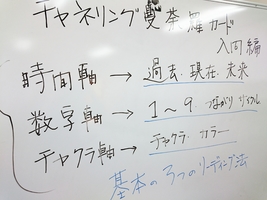 チャネリング曼荼羅カード
入門編
時間軸 → 過去・現在・未来
数字軸 → 1〜9 つながり サイクル
チャクラ軸 → チャクラ カラー
基本の3つのリーディング法